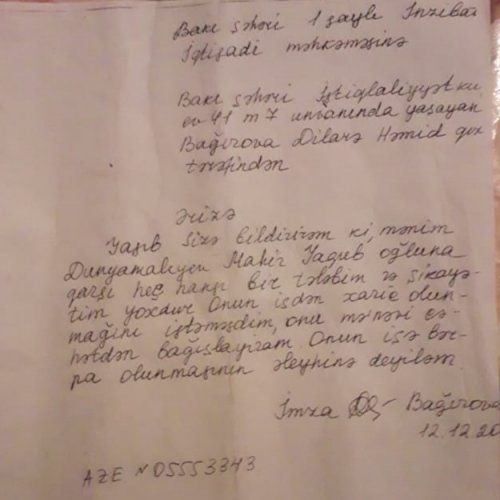 Bakı şəhəri 1 saylı İnzibat
İqtisadi məhkəməsinə
Bakı şəhəri İstiqlaliyyət kü
ev 41 m 7 ünvanında yaşayan
Bağırova Dilarə Həmid qızı
tərəfindən
Ərizə
Yazıb Sizə bildirirəm ki, mənim
Dunyamalıyev Mahir Yaqub oğluna
qarşı heç hansı bir tələbim və şikayə-
tim yoxdur. Onun işdən xaric olun-
mağını istəməzdim, onu mənəvi cə-
hətdən bağışlayıram. Onun işə bər-
pa olunmasının əleyhinə deyiləm.
İmza Bağırova
12.12.20
AZE N 05553343